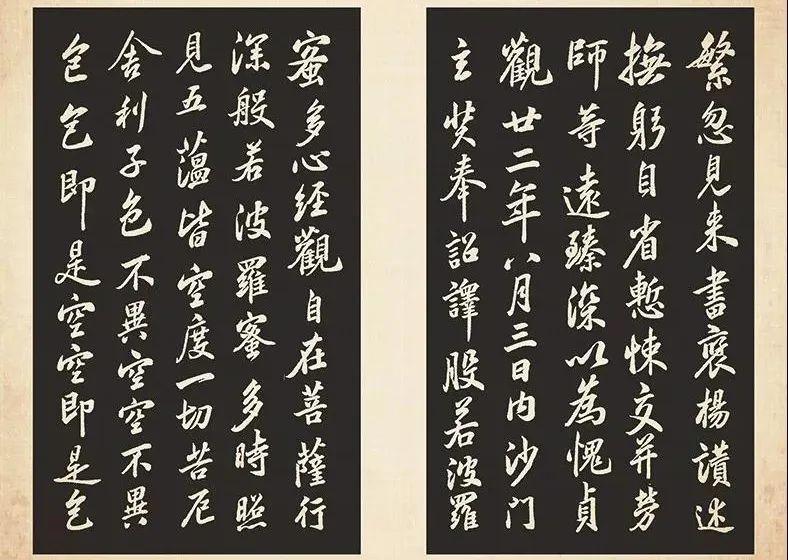 繁忽見来書褒楊讃述
撫躬自省慙悚交并勞
師等遠臻深以為愧貞
觀廿二年八月三日内沙门
主奘奉詔譯般若波羅
蜜多心經觀自在菩薩行
深般若波羅蜜多時照
見五蕴皆空度一切苦厄
舍利子色不異空空不異
色色即是空空即是色